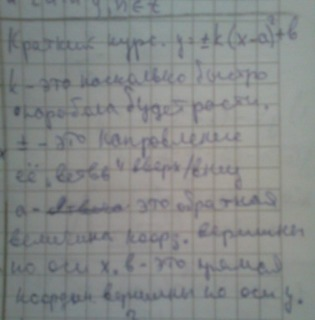 Краткий курс. y=±k(x-a)²+b
k - это насколько быстро
парабола будет расти.
± - это направление
её "ветвь" вверх/вниз
a - это обратная
величина коорд. вершины
по оси x, b - это прямая
коордн вершины по оси y.